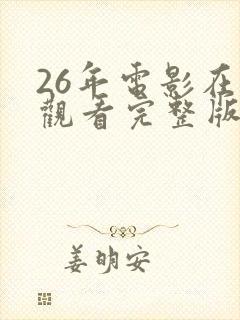 26年電影在
觀看完整版
姜明安